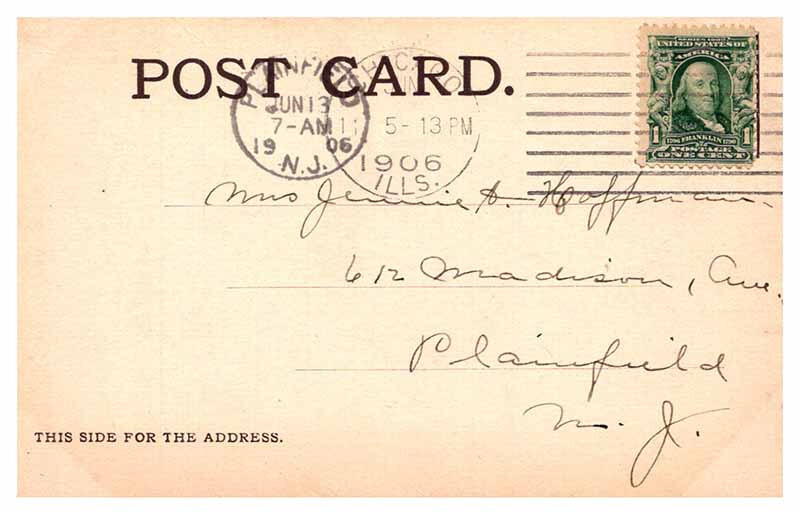 POST CARD.
PLAINFIELD
JUN 13
7-AM
19 06
N.J.
5-13 PM
1906
ILLS.
SERIES 1902
UNITED STATES OF
AMERICA
1 FRANKLIN 1
POSTAGE
ONE CENT
Mrs Jennie H. Hoffman.
612 Madison, Ave.
Plainfield
N. J.
THIS SIDE FOR THE ADDRESS.